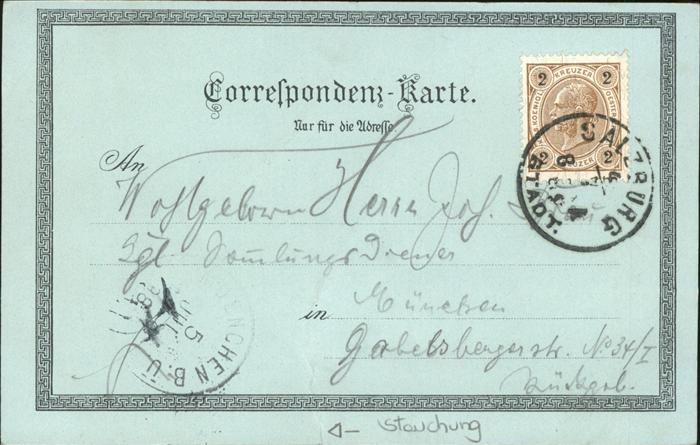 Correspondenz-Karte.
Nur für die Adresse.
An
Wohlgeborn Herrn Jos.
Kgl. Sammlungs Diener
in
München
Gabelsbergerstr. No 34/I
Rückgeb.
2 KREUZER 2
2 KREUZER 2
SALZBURG
STADT
MÜNCHEN B.U.
JUL
5
98
Stauchung